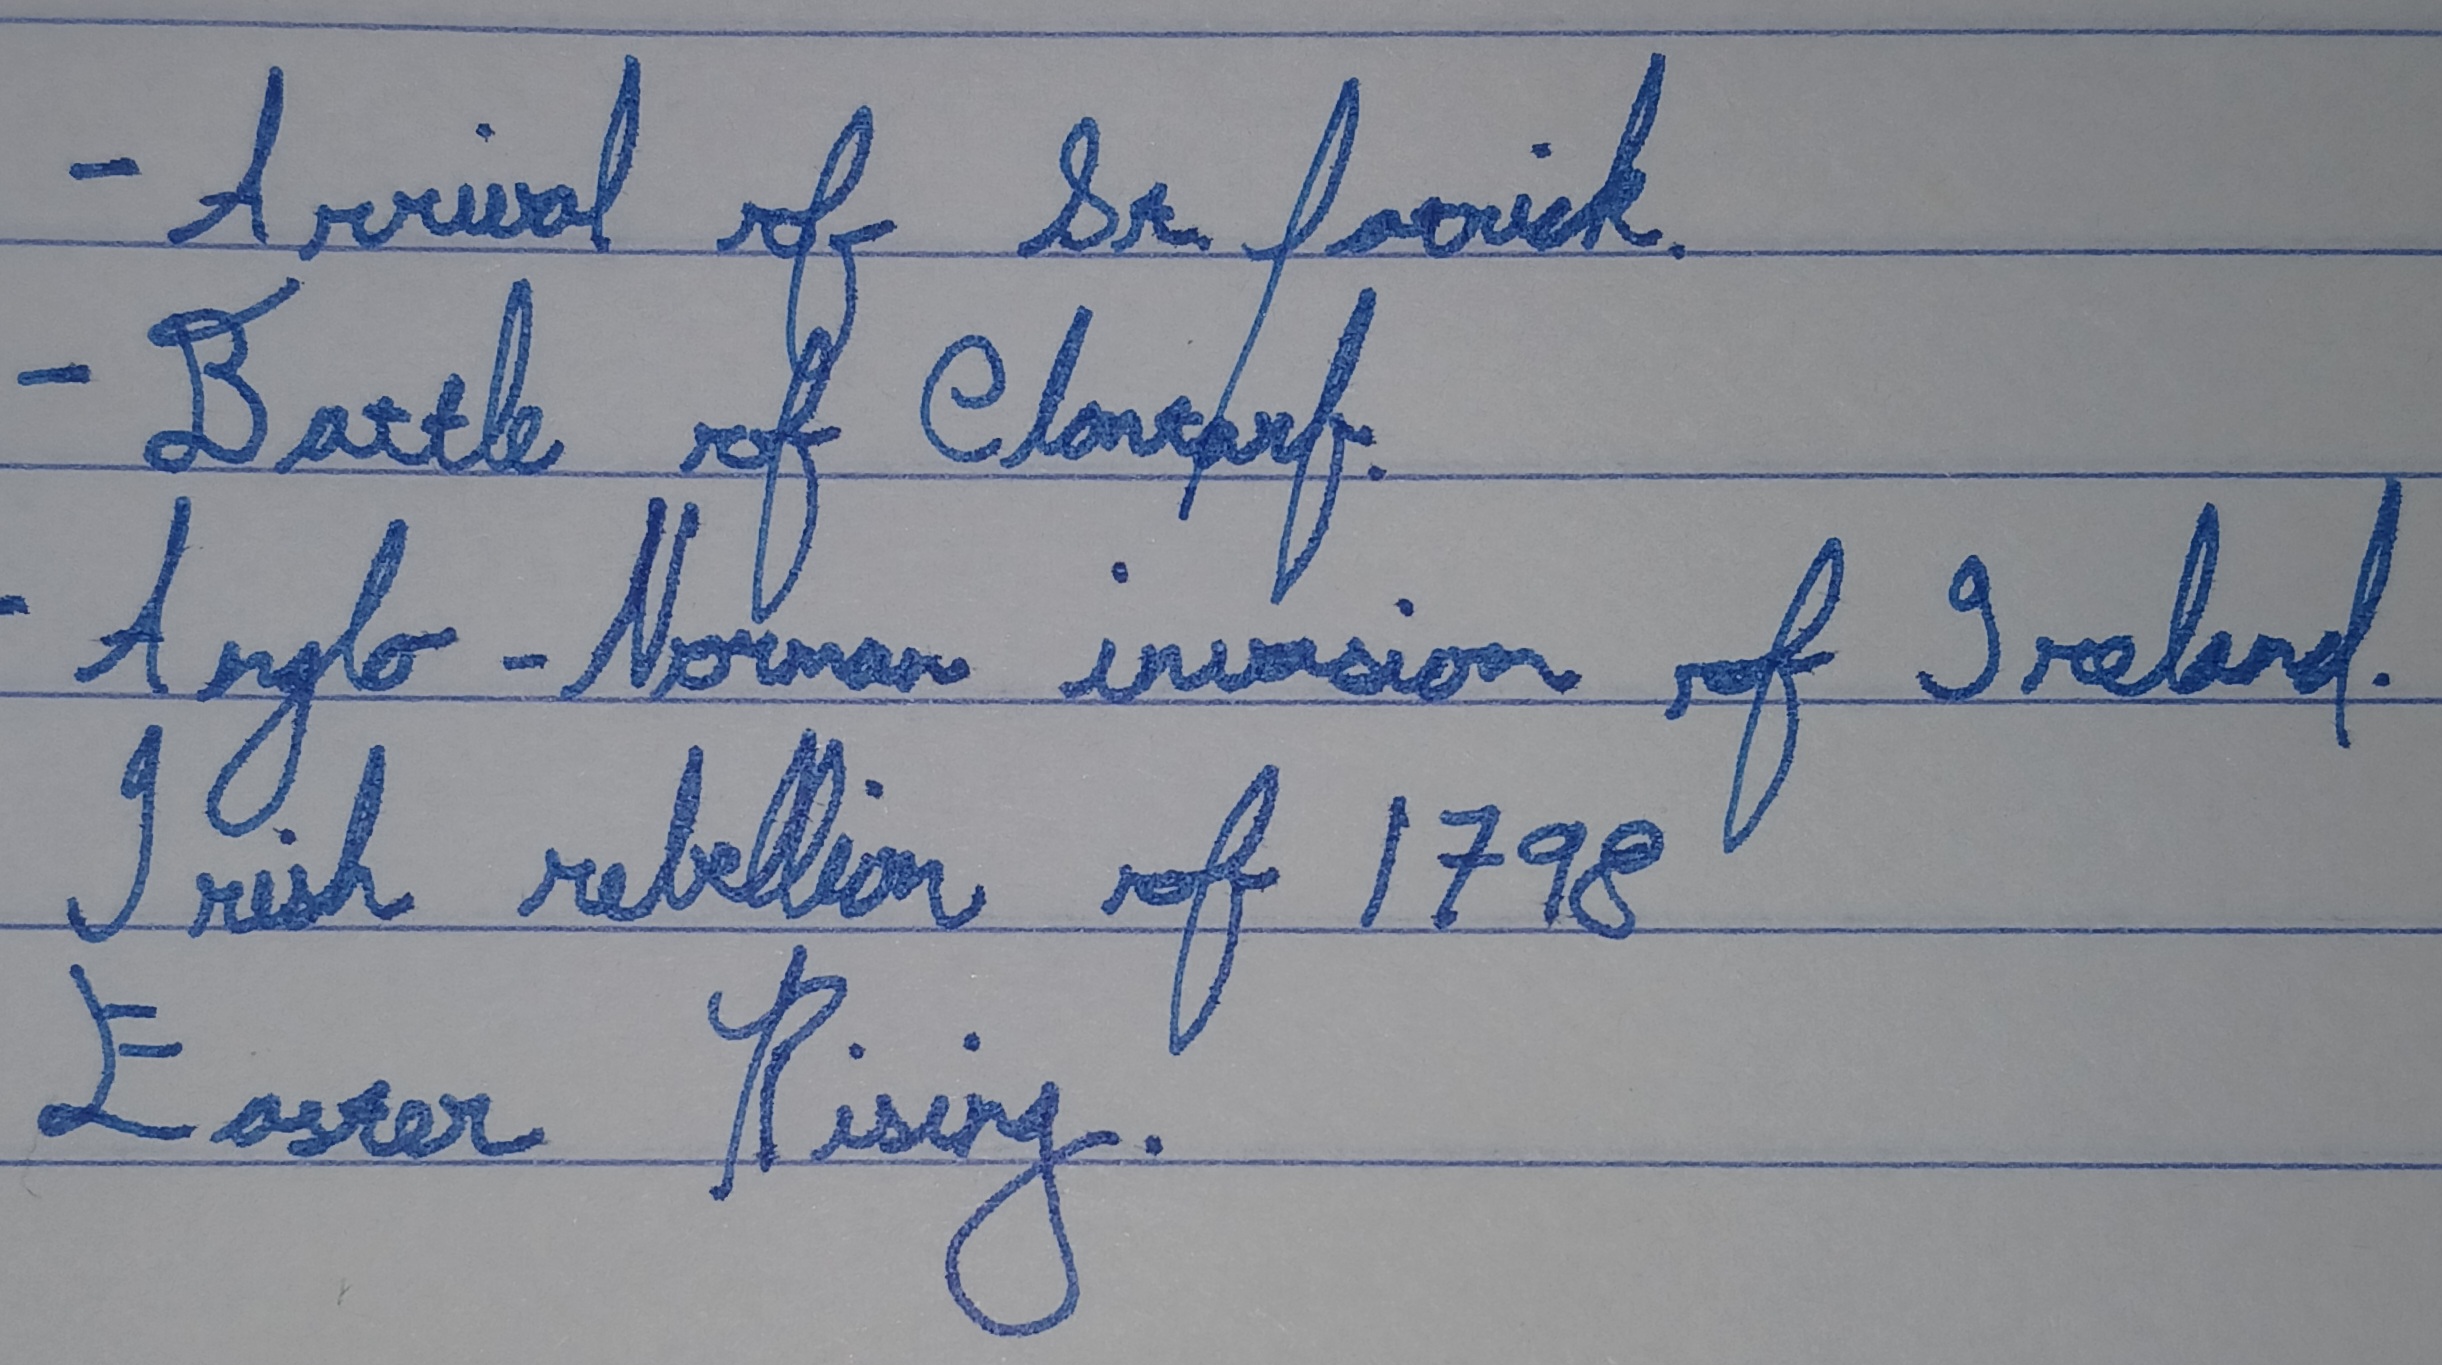 - Arrival of St. Patrick.
- Battle of Clontarf.
- Anglo-Norman invasion of Ireland.
Irish rebellion of 1798
Easter Rising.